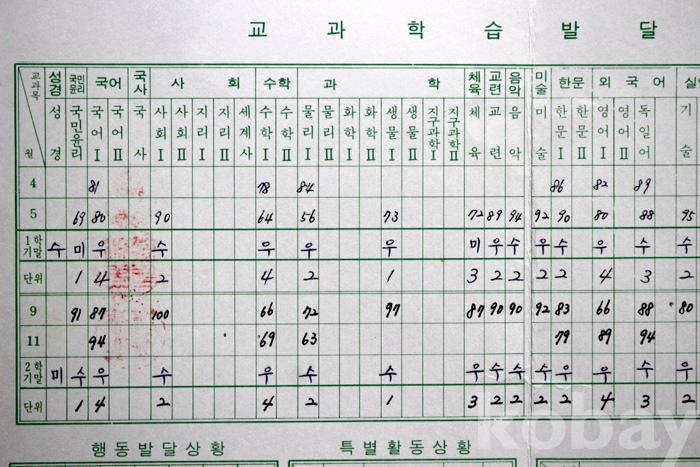 교 과 학 습 발 달
교과목 성경 국민윤리 국어 국사 사 회 수학 과 학 체육 교련 음악 미술 한문 외 국 어 실
월 성경 국민윤리 국어Ⅰ 국어Ⅱ 국사 사회Ⅰ 사회Ⅱ 지리Ⅰ 지리Ⅱ 세계사 수학Ⅰ 수학Ⅱ 물리Ⅰ 물리Ⅱ 화학Ⅰ 화학Ⅱ 생물Ⅰ 생물Ⅱ 지구과학Ⅰ 지구과학Ⅱ 체육 교련 음악 미술 한문Ⅰ 한문Ⅱ 영어Ⅰ 영어Ⅱ 독일어 기술
4 81 78 84 86 82 89
5 69 80 90 64 56 73 72 89 94 92 90 80 88 95
1학기말 수 미 우 수 우 우 우 미 우 수 수 수 우 수 수
단위 1 4 2 4 2 1 3 2 2 2 2 4 3 2
9 91 87 100 66 72 97 87 90 90 92 83 66 88 80
11 94 69 63 79 89 94
2학기말 미 수 우 수 우 수 수 우 수 수 수 우 우 수 우
단위 1 4 2 4 2 1 3 2 2 2 2 4 3 2
행동발달상황 특별활동상황
kobay